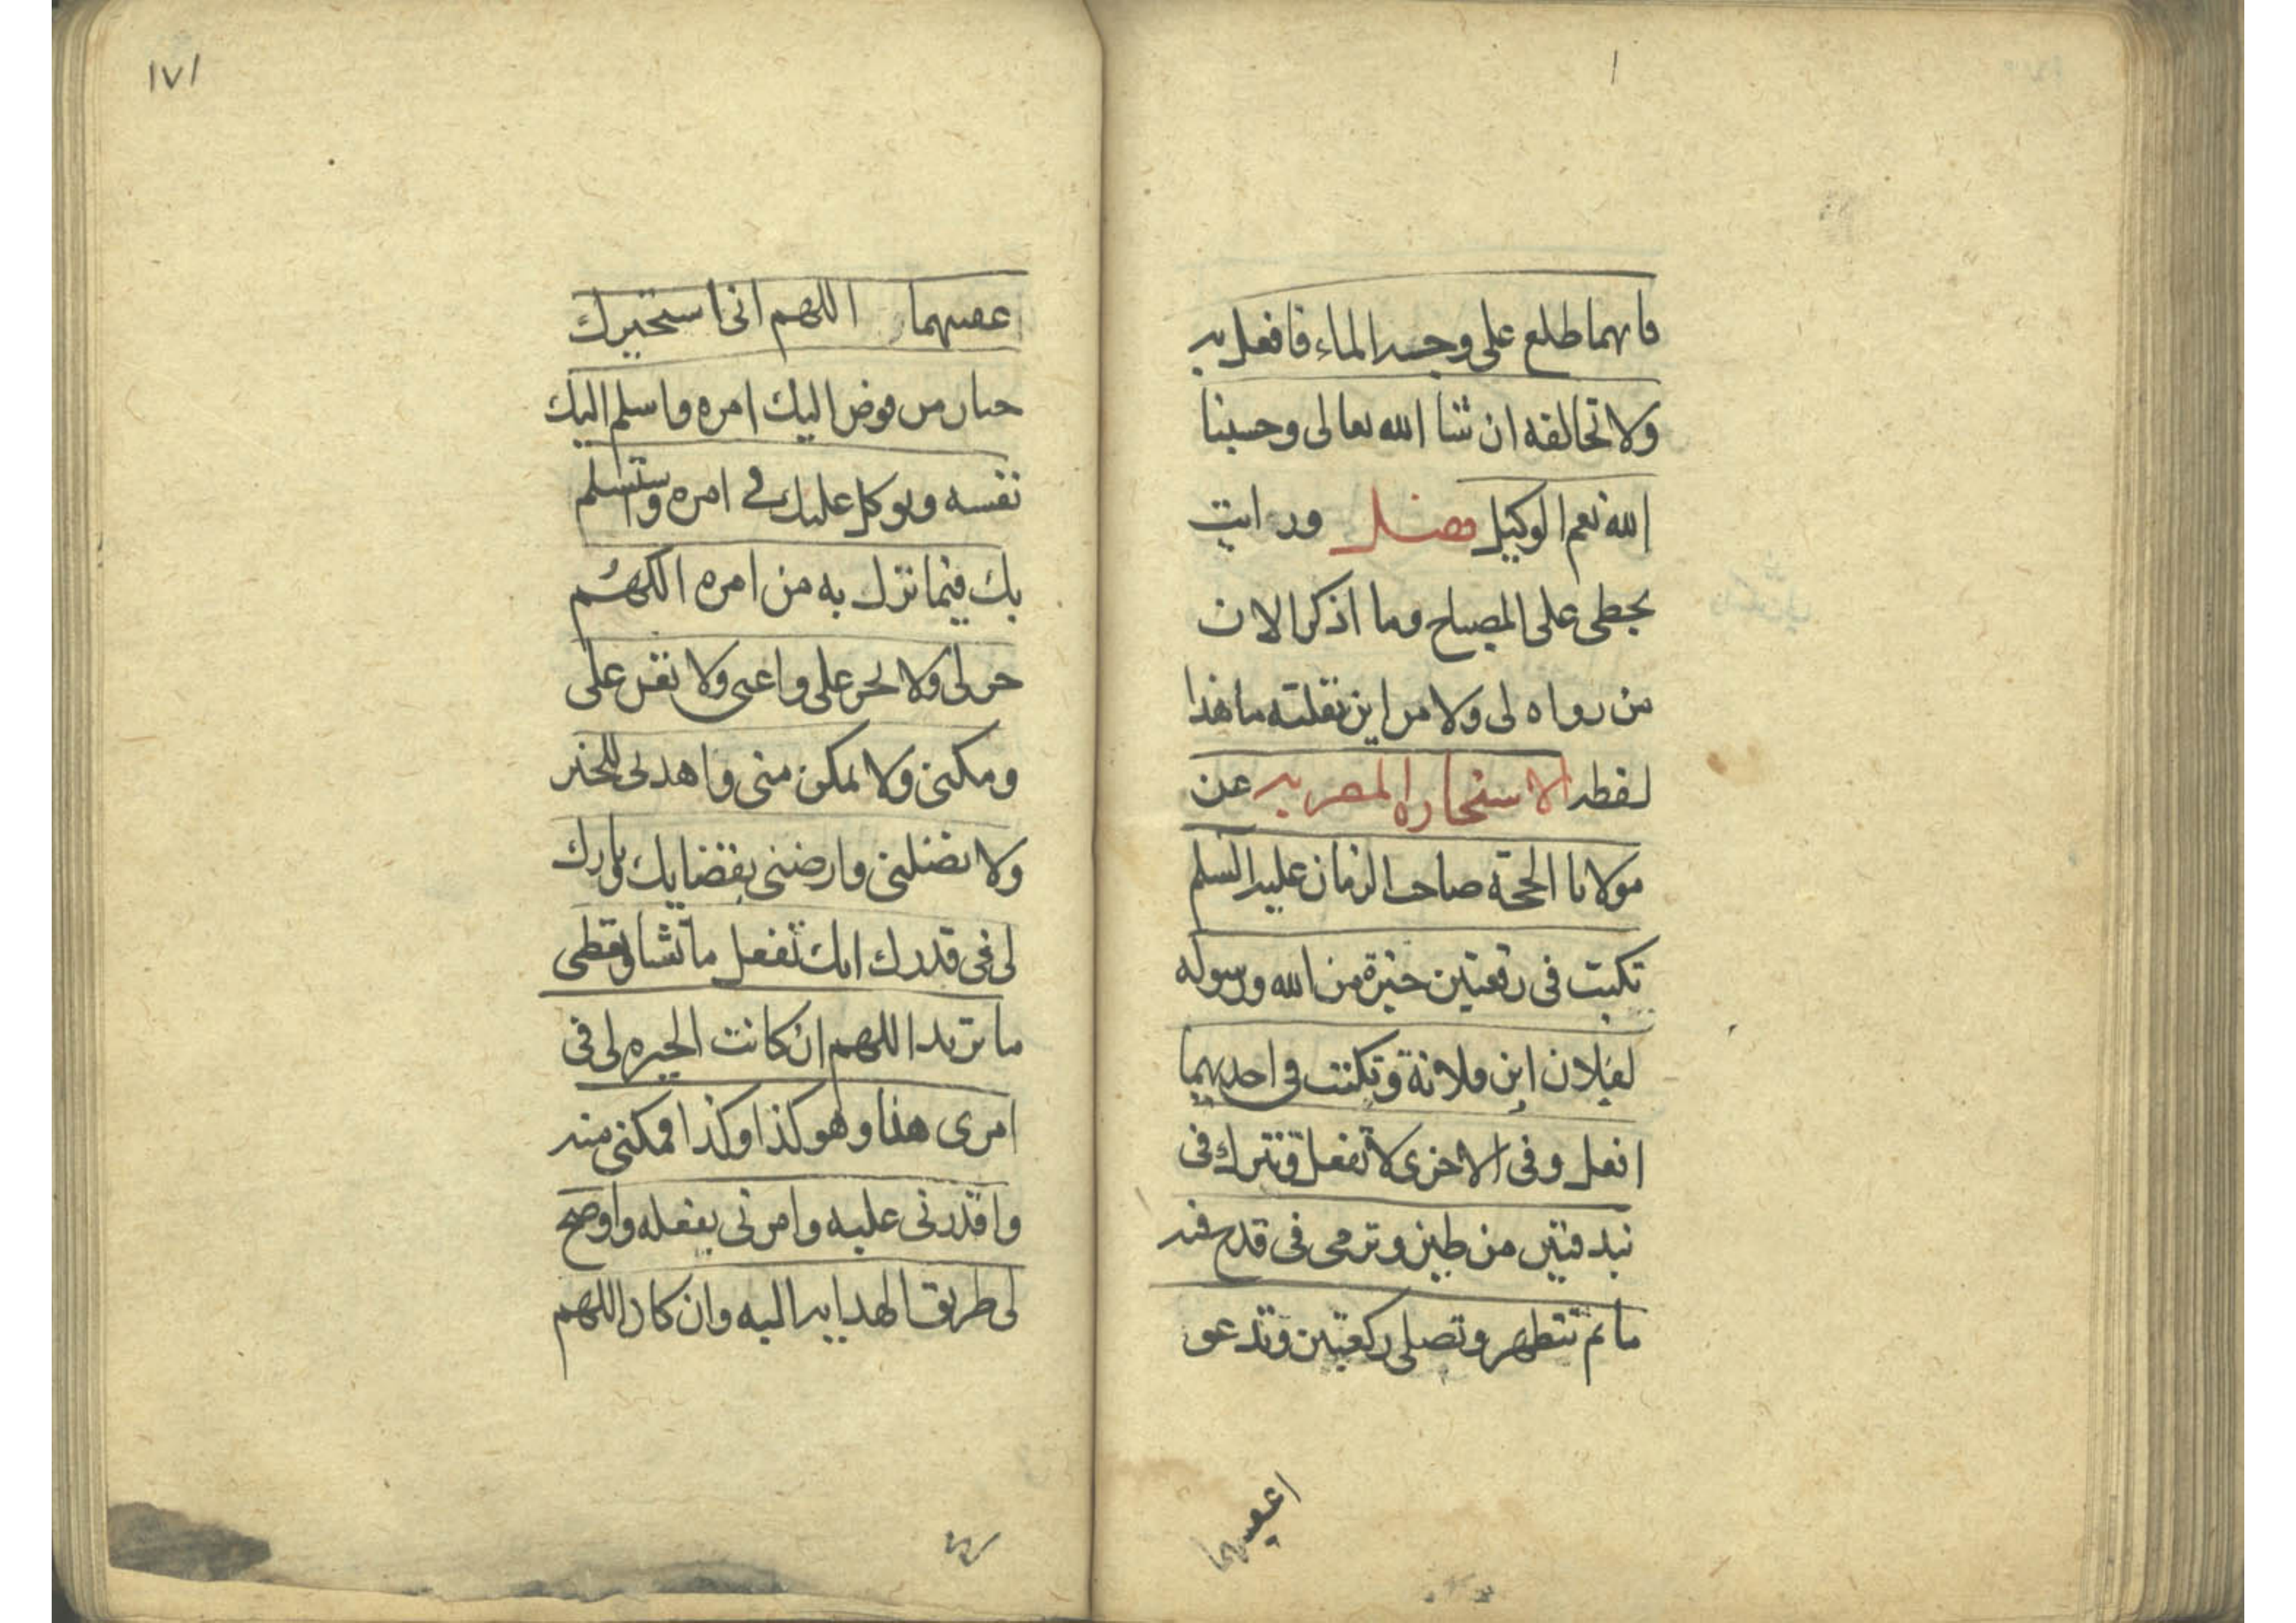 فابهما طلع على وجه الماء فافعل به
ولا تخالفه ان شا الله تعالى وحسبنا
الله نعم الوكيل فصل ورايت
بخطى على المصباح وما اذكر الان
من رواه لى ولا من اين نقلته ما هذا
لفظه الاستخاره المصريه عن
مولانا الحجة صاحب الزمان عليه السلم
تكتب فى رقعتين خيرة من الله ورسوله
لفلان ابن فلانة وتكتب فى احديهما
افعل وفى الاخرى لا تفعل وتترك فى
بندقتين من طين وترمى فى قدح فيه
ما ثم تتطهر وتصلى ركعتين وتدعو
١٧١
عقيبهما اللهم انى استخيرك
خيار من فوض اليك امره واسلم اليك
نفسه وتوكل عليك فى امره واستسلم
بك فيما نزل به من امره اللهم
خر لى ولا تخر على واعنى ولا تعن على
ومكنى ولا تمكن منى واهدنى للخير
ولا تضلنى وارضنى بقضايك وبارك
لى فى قدرك انك تفعل ما تشا وتعطى
ما تريد اللهم ان كانت الخيره لى فى
امرى هذا وهو كذا وكذا فمكنى منه
واقدرنى عليه وامرنى بفعله واوضح
لى طريق الهدايه اليه وان كان اللهم